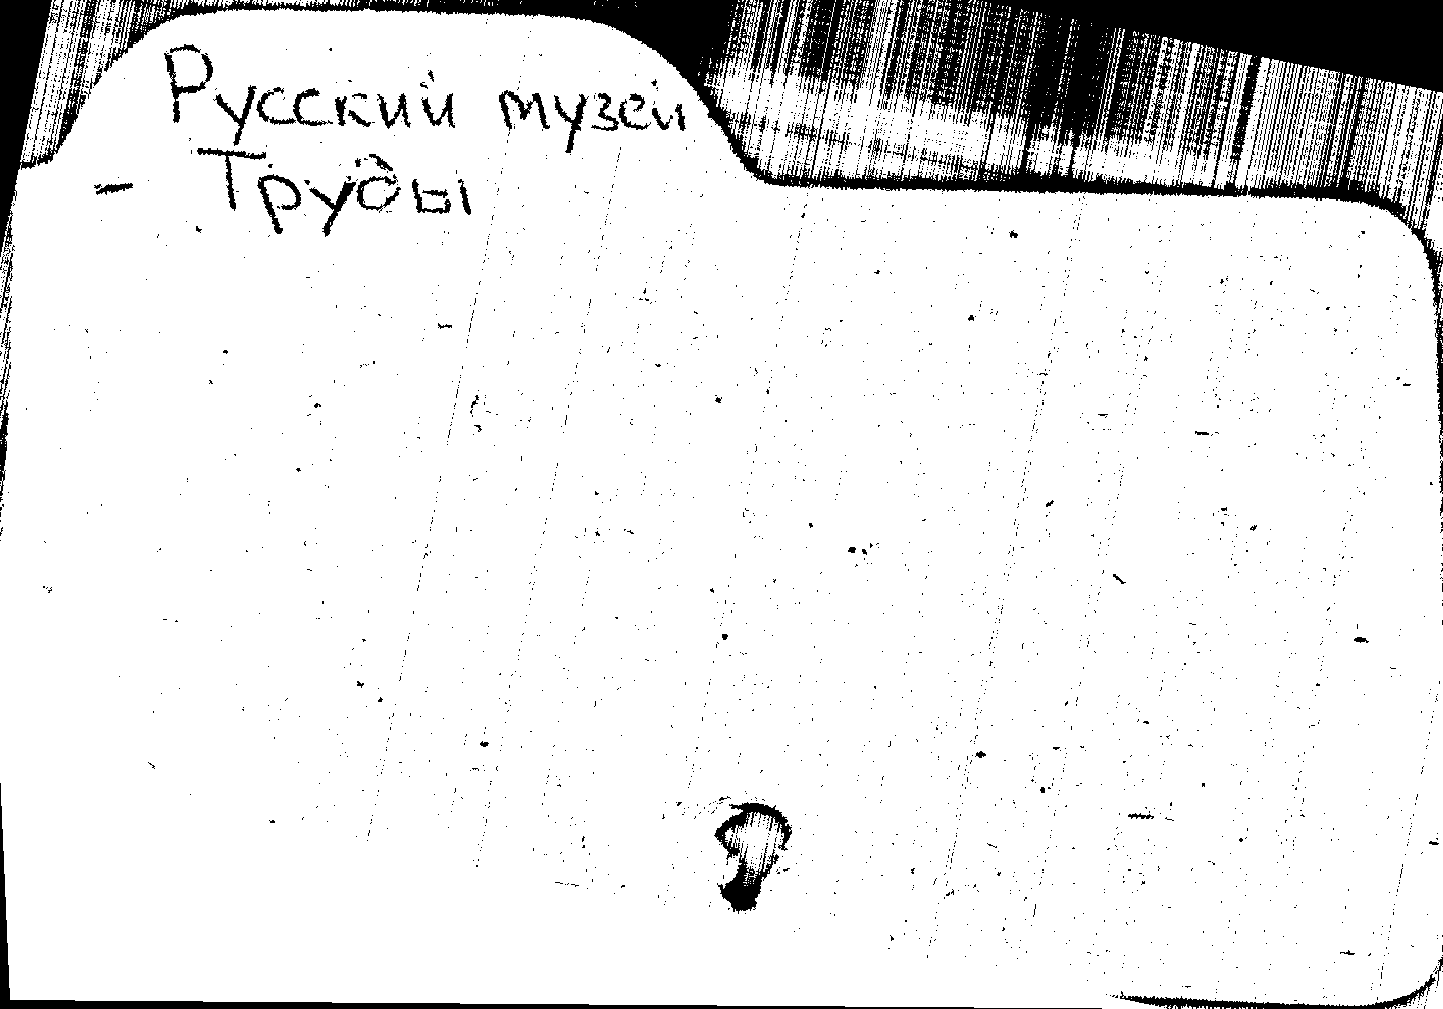 Русский музей
- Труды